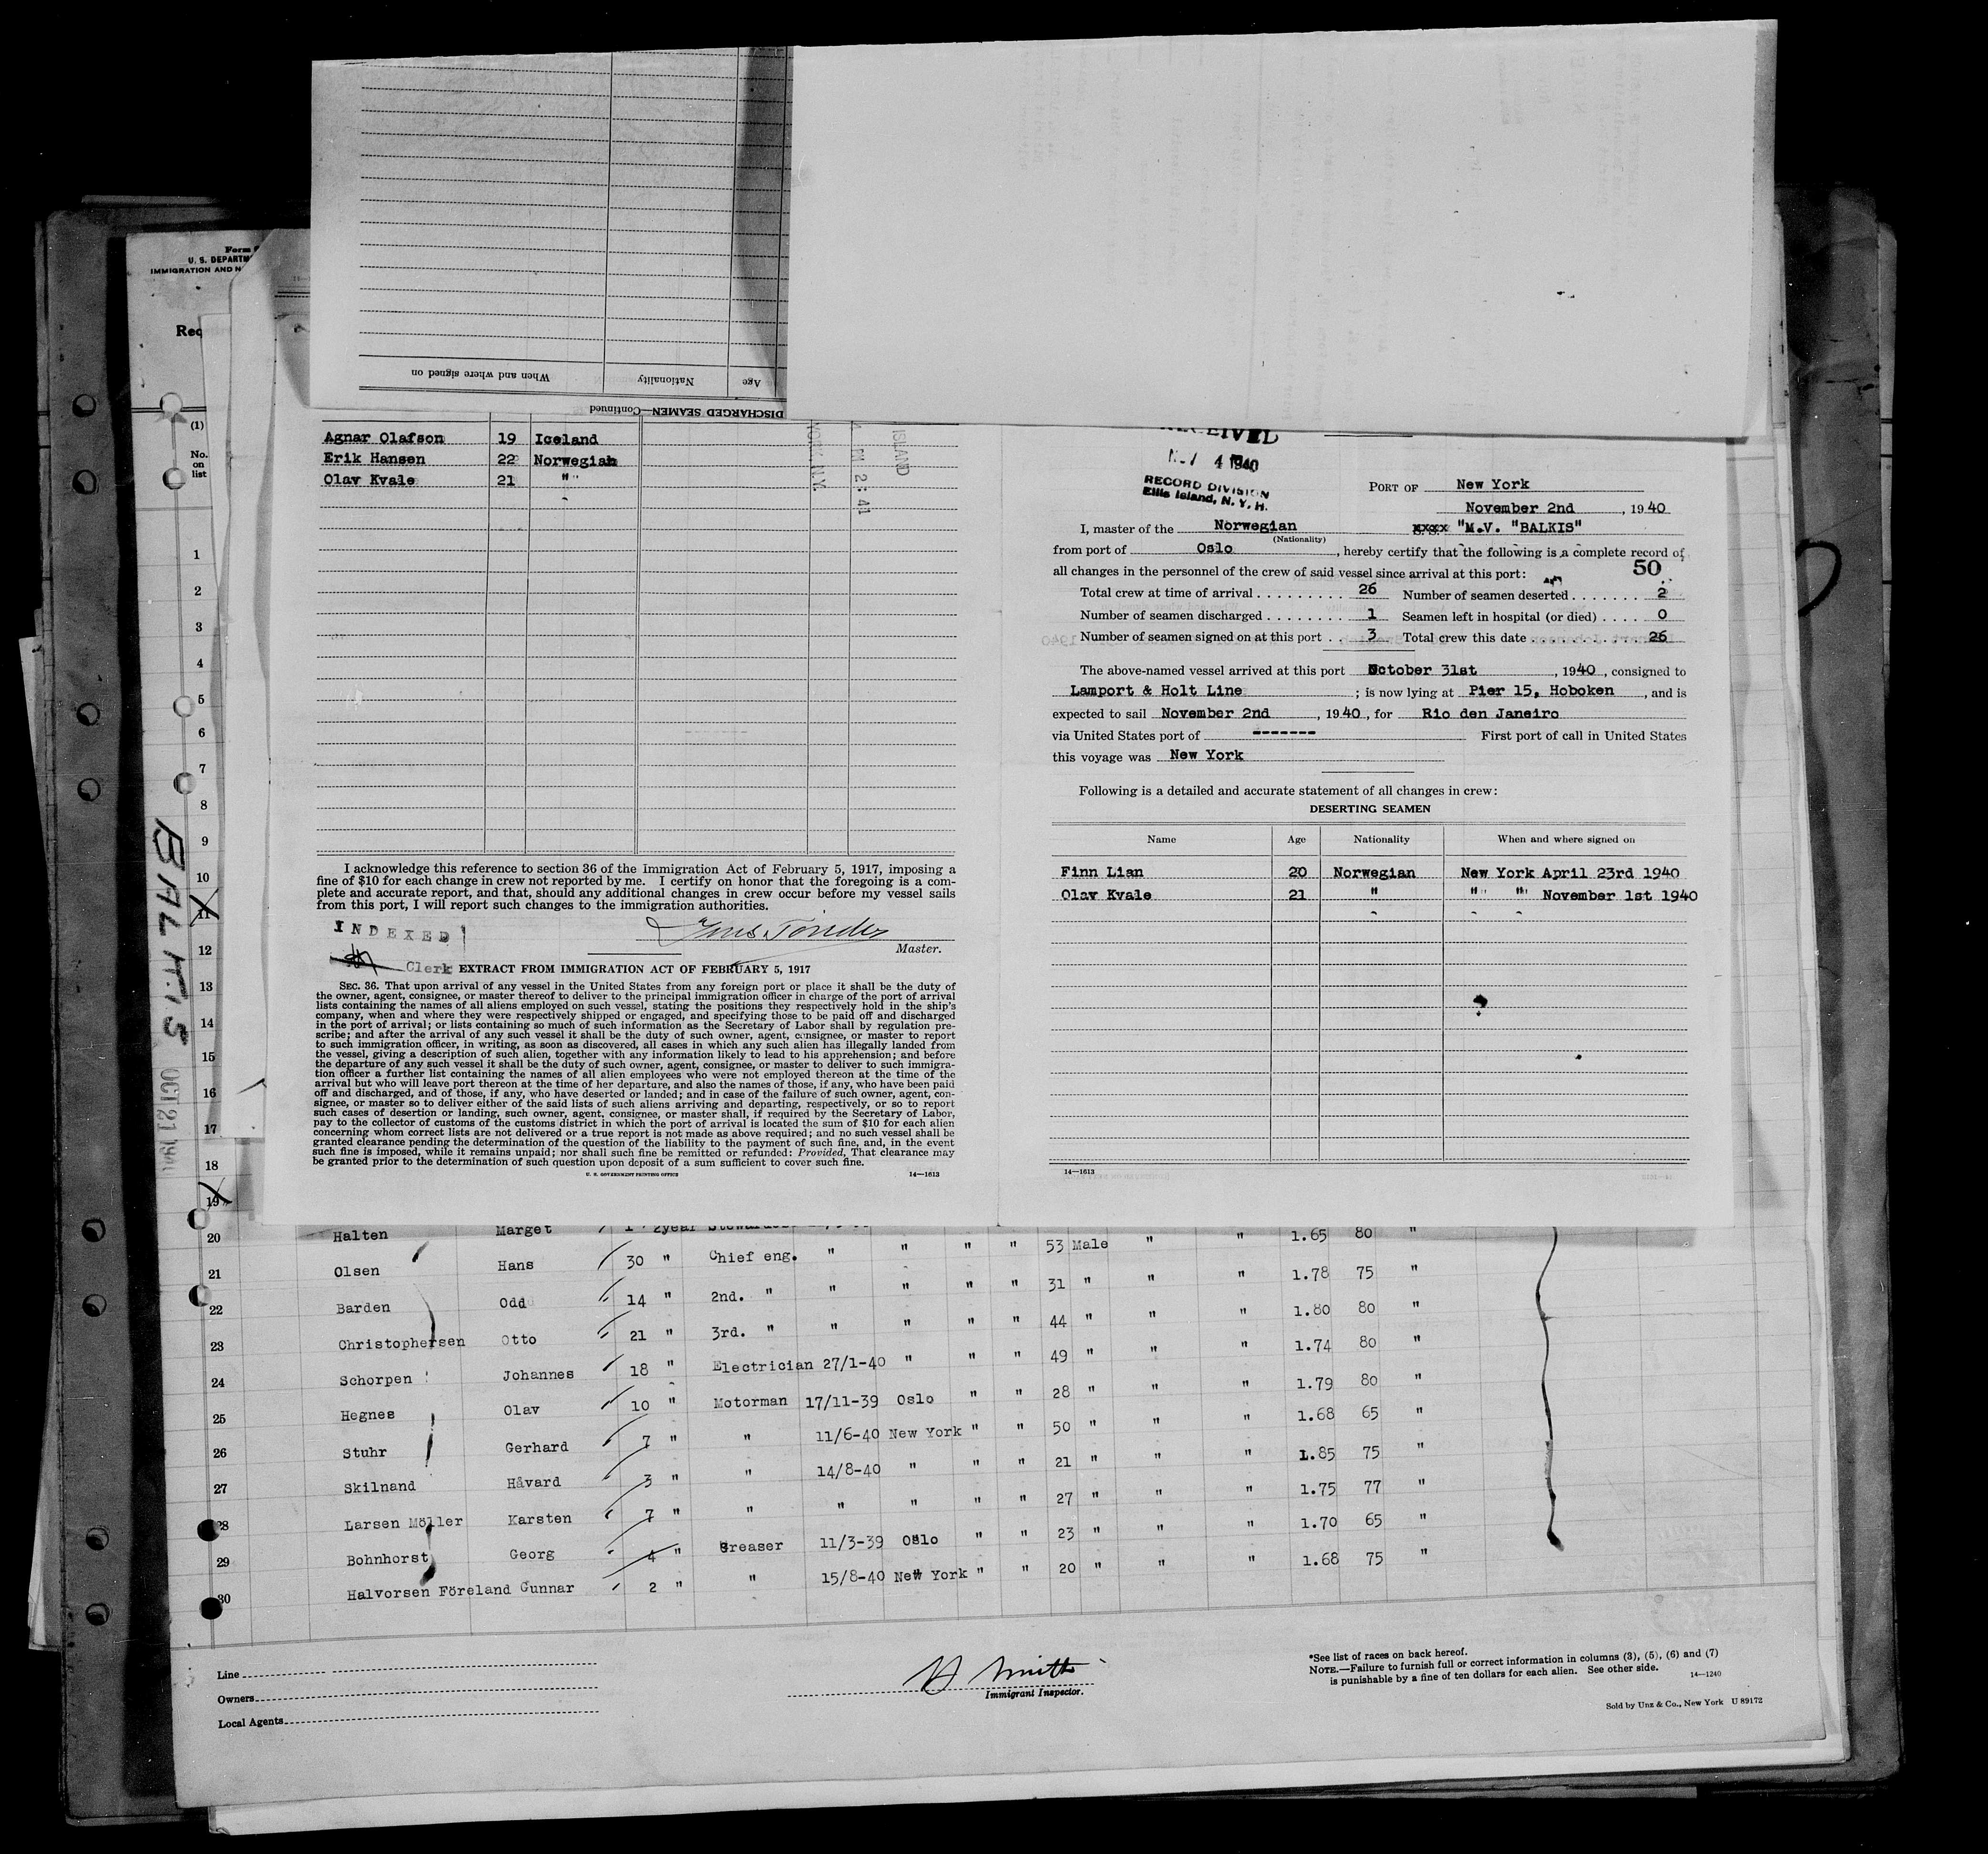 When and where signed on
Nationality
Age
DISCHARGED SEAMEN—Continued
Form
U. S. DEPARTM
IMMIGRATION AND N
Req
(1)
No.
on
list
BALKIS
OCT 21
Agnar Olafson 19 Iceland
Erik Hansen 22 Norwegian
Olav Kvale 21 " "
YORK, N.Y.
PM 2:41
ISLAND
I acknowledge this reference to section 36 of the Immigration Act of February 5, 1917, imposing a
fine of $10 for each change in crew not reported by me. I certify on honor that the foregoing is a com-
plete and accurate report, and that, should any additional changes in crew occur before my vessel sails
from this port, I will report such changes to the immigration authorities.
INDEXED
Master.
Clerk EXTRACT FROM IMMIGRATION ACT OF FEBRUARY 5, 1917
SEC. 36. That upon arrival of any vessel in the United States from any foreign port or place it shall be the duty of
the owner, agent, consignee, or master thereof to deliver to the principal immigration officer in charge of the port of arrival
lists containing the names of all aliens employed on such vessel, stating the positions they respectively hold in the ship's
company, when and where they were respectively shipped or engaged, and specifying those to be paid off and discharged
in the port of arrival; or lists containing so much of such information as the Secretary of Labor shall by regulation pre-
scribe; and after the arrival of any such vessel it shall be the duty of such owner, agent, consignee, or master to report
to such immigration officer, in writing, as soon as discovered, all cases in which any such alien has illegally landed from
the vessel, giving a description of such alien, together with any information likely to lead to his apprehension; and before
the departure of any such vessel it shall be the duty of such owner, agent, consignee, or master to deliver to such immigra-
tion officer a further list containing the names of all alien employees who were not employed thereon at the time of the
arrival but who will leave port thereon at the time of her departure, and also the names of those, if any, who have been paid
off and discharged, and of those, if any, who have deserted or landed; and in case of the failure of such owner, agent, con-
signee, or master so to deliver either of the said lists of such aliens arriving and departing, respectively, or so to report
such cases of desertion or landing, such owner, agent, consignee, or master shall, if required by the Secretary of Labor,
pay to the collector of customs of the customs district in which the port of arrival is located the sum of $10 for each alien
concerning whom correct lists are not delivered or a true report is not made as above required; and no such vessel shall be
granted clearance pending the determination of the question of the liability to the payment of such fine, and, in the event
such fine is imposed, while it remains unpaid; nor shall such fine be remitted or refunded: Provided, That clearance may
be granted prior to the determination of such question upon deposit of a sum sufficient to cover such fine.
U. S. GOVERNMENT PRINTING OFFICE 14—1613
RECEIVED
4 1940
RECORD DIVISION
Ellis Island, N. Y. H.
PORT OF New York
November 2nd, 1940
I, master of the Norwegian xxxx "M.V. "BALKIS"
(Nationality)
from port of Oslo, hereby certify that the following is a complete record of
all changes in the personnel of the crew of said vessel since arrival at this port: 50
Total crew at time of arrival . . . . . . . . . 26 Number of seamen deserted . . . . . . . 2
Number of seamen discharged . . . . . . . . 1 Seamen left in hospital (or died) . . . . 0
Number of seamen signed on at this port . . 3 Total crew this date . . . . . . . . . . . 26
The above-named vessel arrived at this port October 31st, 1940, consigned to
Lamport & Holt Line; is now lying at Pier 15, Hoboken, and is
expected to sail November 2nd, 1940, for Rio den Janeiro
via United States port of ------- First port of call in United States
this voyage was New York
Following is a detailed and accurate statement of all changes in crew:
DESERTING SEAMEN
Name Age Nationality When and where signed on
Finn Lian 20 Norwegian New York April 23rd 1940
Olav Kvale 21 " " " November 1st 1940
14—1613
1
2
3
4
5
6
7
8
9
10
11
12
13
14
15
16
17
18
19
20 Halten Marget 2year
21 Olsen Hans 30 " Chief eng. " " " " 53 Male " " 1.65 80 "
22 Barden Odd 14 " 2nd. " " " " " 31 " " " 1.78 75 "
23 Christophersen Otto 21 " 3rd. " " " " " 44 " " " 1.80 80 "
24 Schorpen Johannes 18 " Electrician 27/1-40 " " " 49 " " " 1.74 80 "
25 Hegnes Olav 10 " Motorman 17/11-39 Oslo " " 28 " " " 1.79 80 "
26 Stuhr Gerhard 7 " " 11/6-40 New York " " 50 " " " 1.68 65 "
27 Skilnand Håvard 3 " " 14/8-40 " " " 21 " " " 1.85 75 "
28 Larsen Möller Karsten 7 " " " " " " 27 " " " 1.75 77 "
29 Bohnhorst Georg 4 " Greaser 11/3-39 Oslo " " 23 " " " 1.70 65 "
30 Halvorsen Föreland Gunnar 2 " " 15/8-40 New York " " 20 " " " 1.68 75 "
Line
Owners
Local Agents
H Smith
Immigrant Inspector.
*See list of races on back hereof.
NOTE.—Failure to furnish full or correct information in columns (3), (5), (6) and (7)
is punishable by a fine of ten dollars for each alien. See other side.
14—1240
Sold by Unz & Co., New York U 89172